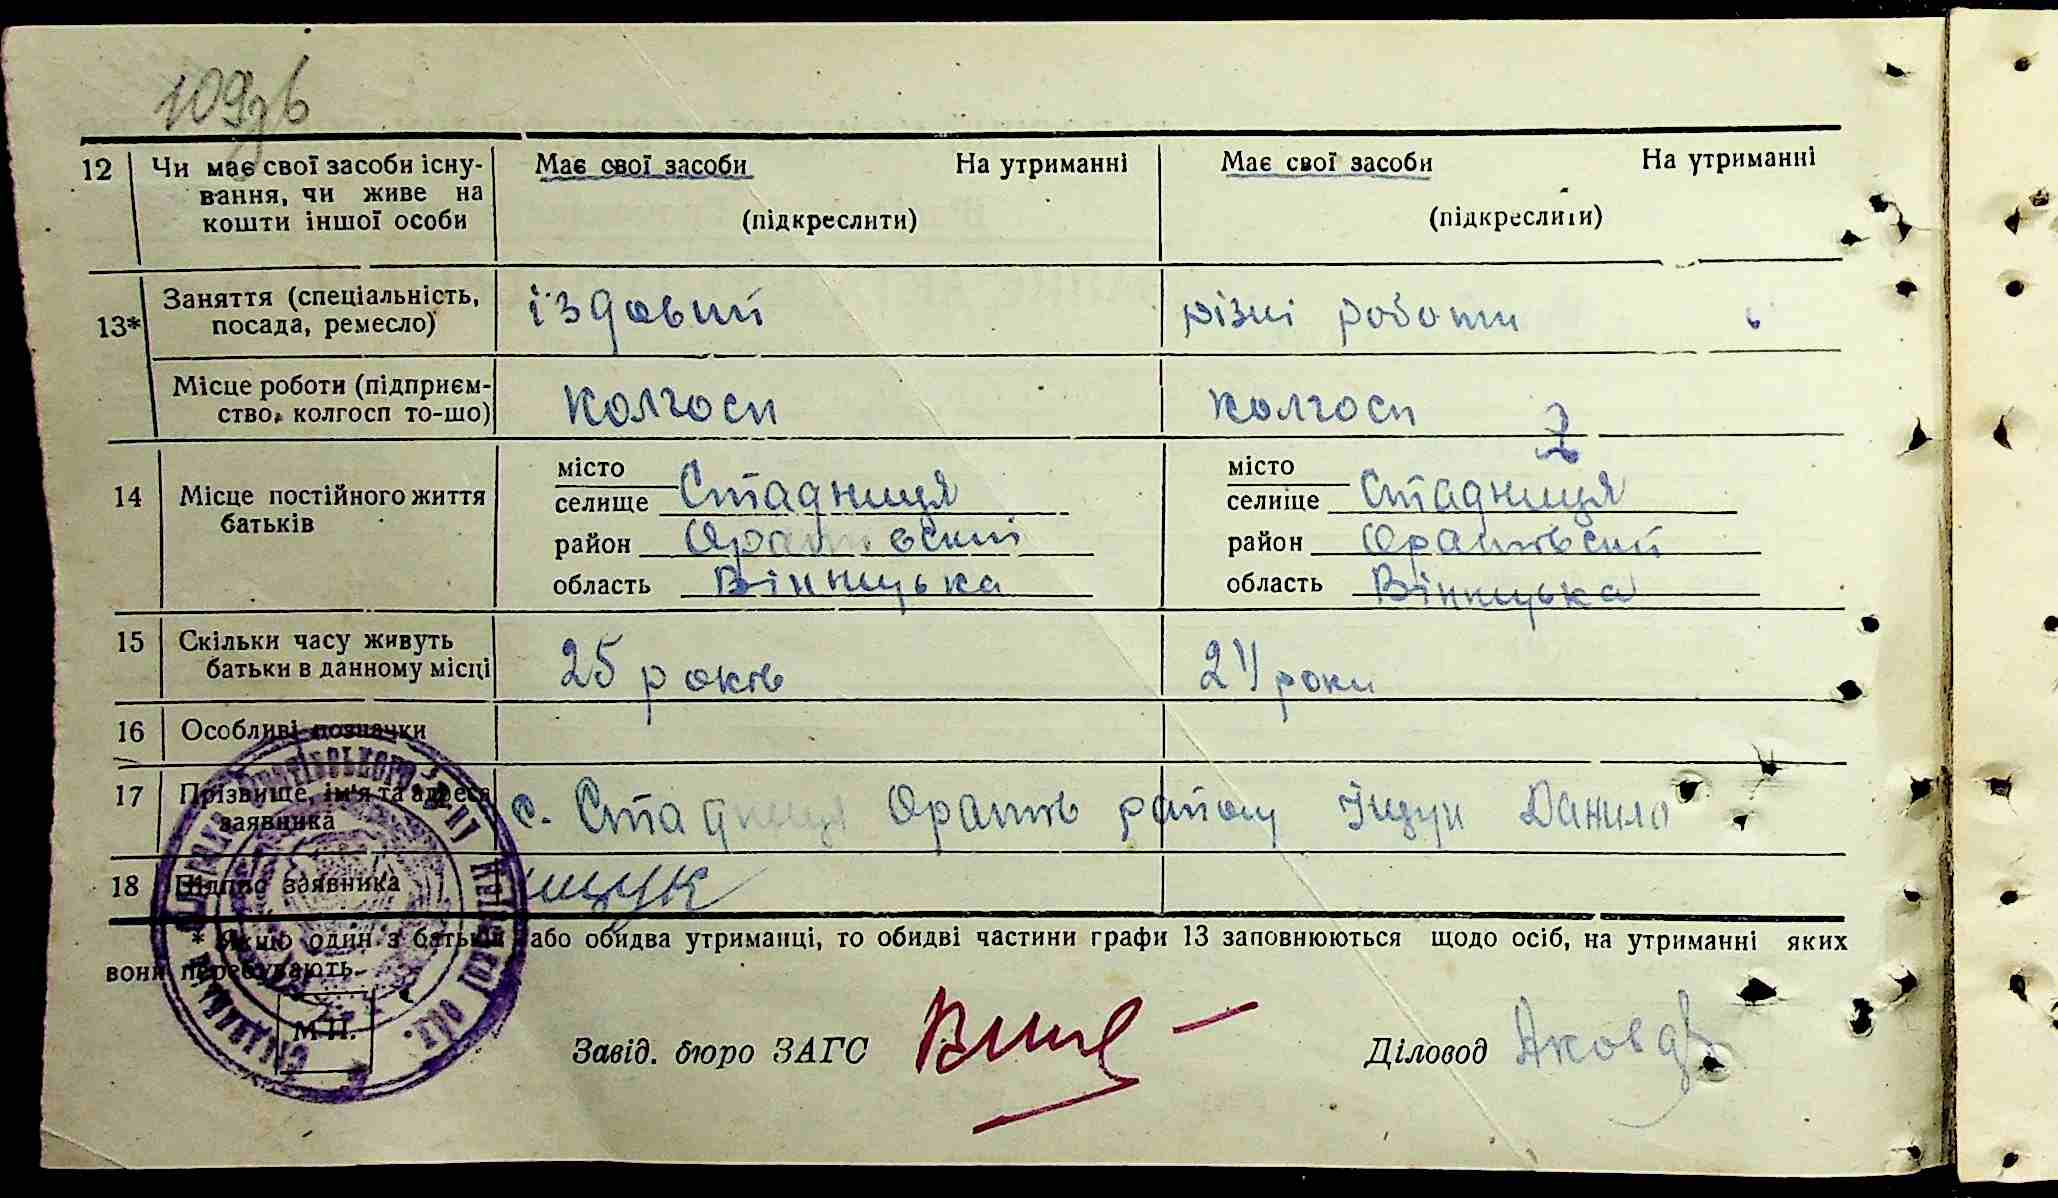 109зв
12 Чи має свої засоби існу- Має свої засоби На утриманні Має свої засоби На утриманні
вання, чи живе на
кошти іншої особи (підкреслити) (підкреслити)
13* Заняття (спеціальність, їздовий різні роботи
посада, ремесло)
Місце роботи (підприєм- колгосп колгосп
ство, колгосп то-що)
місто місто
14 Місце постійного життя селище Стадниця селище Стадниця
батьків район Оратовский район Оратовский
область Вінницька область Вінницька
15 Скільки часу живуть 25 років 24 роки
батьки в данному місці
16 Особливі позначки
17 Прізвище, ім'я та адреса с. Стадниця Оратів району Іщук Данило
заявника
18 Підпис заявника Іщук
* Якщо один з батьків або обидва утриманці, то обидві частини графи 13 заповнюються щодо осіб, на утриманні яких
вони перебувають.
М П.
Завід. бюро ЗАГС Діловод